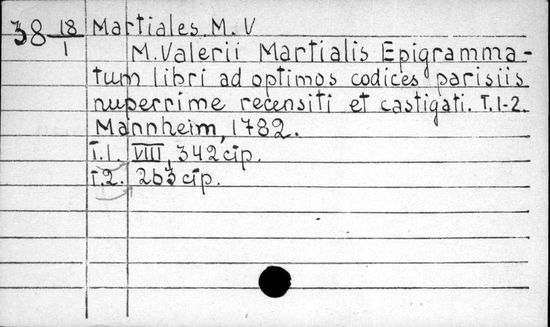 38 18/1 Martiales M. V
M. Valerii Martialis Epigramma-
tum libri ad optimos codices parisiis
nuperrime recensiti et castigati. T.1-2.
Mannheim, 1782.
T.1. VIII, 342 cip.
T.2. 263 cip.